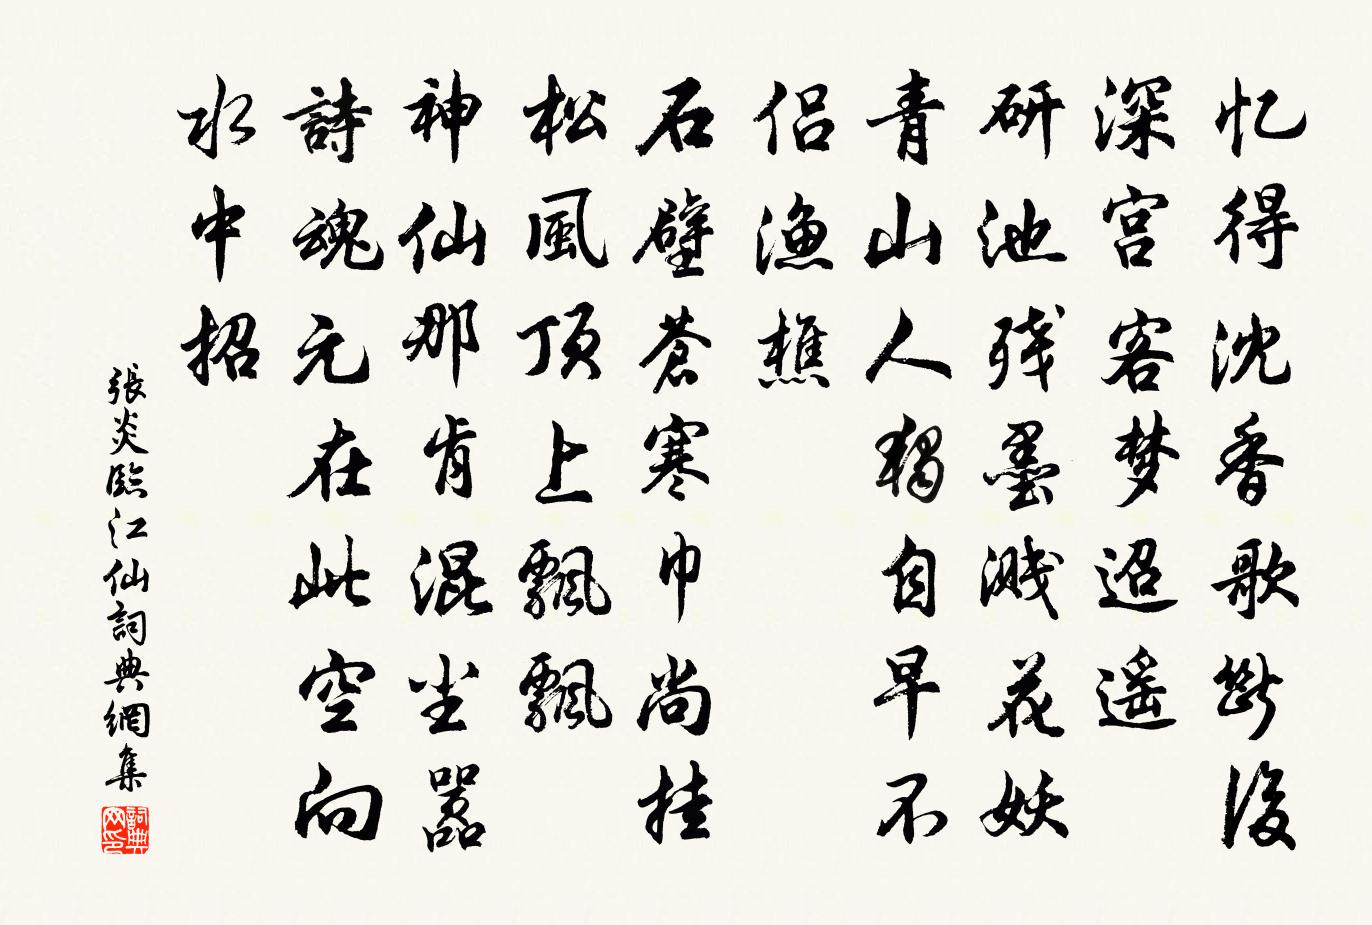 忆得沈香歌斷後
深宫客梦迢遥
研池残墨溅花妖
青山人独自早不
侣渔樵
石壁苍寒巾尚挂
松風顶上飘飘
神仙那肯混尘嚣
詩魂元在此空向
水中招
張炎臨江仙詞典網集
詞典網印